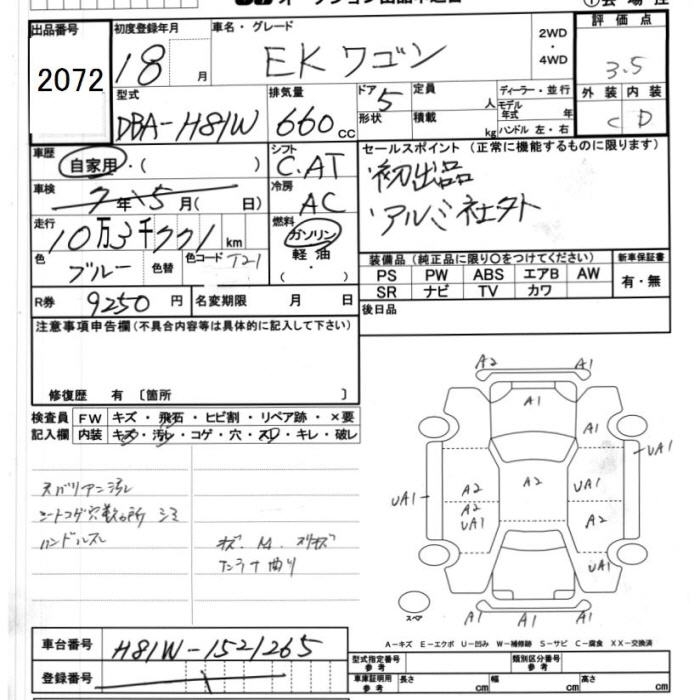 出品番号 初度登録年月 車名・グレード 2WD ・ 4WD 評価点
2072 18 月 EKワゴン 3.5
型式 排気量 ドア 5 定員 人 ディーラー・並行 外装 内装
DBA-H81W 660 CC 形状 積載 kg モデル年式 年 ハンドル 左・右 C D
車歴 自家用・( ) シフト C.AT セールスポイント(正常に機能するものに限ります)
車検 7年 5月( 日) 冷房 AC 初出品
走行 10万3千771 km 燃料 ガソリン アルミ社外
色 ブルー 色替 色コード T21 軽油 ・( ) 装備品(純正品に限り〇をつけてください) 新車保証書
PS PW ABS エアB AW 有・無
R券 9250円 名変期限 月 日 SR ナビ TV カワ
注意事項申告欄(不具合内容等は具体的に記入して下さい) 後日品
修復歴 有 〔箇所 〕
検査員 FW キズ・飛石・ヒビ割・リペア跡・×要
記入欄 内装 キズ・汚レ・コゲ・穴・スレ・キレ・破レ
A2 A1
A1 A1
UA1
UA1 A2 A2 UA1
A2 UA1 A2
UA1
A1 A1 A1
スペア
ハンドルスレ
キズ.M.スリキズ
アンテナ曲り
A-キズ E-エクボ U-凹み W-補修跡 S-サビ C-腐食 XX-交換済
車台番号 H81W-1521265 型式指定番号 参考 類別区分番号 参考
登録番号 車庫証明用 参考 長さ cm 幅 cm 高さ cm